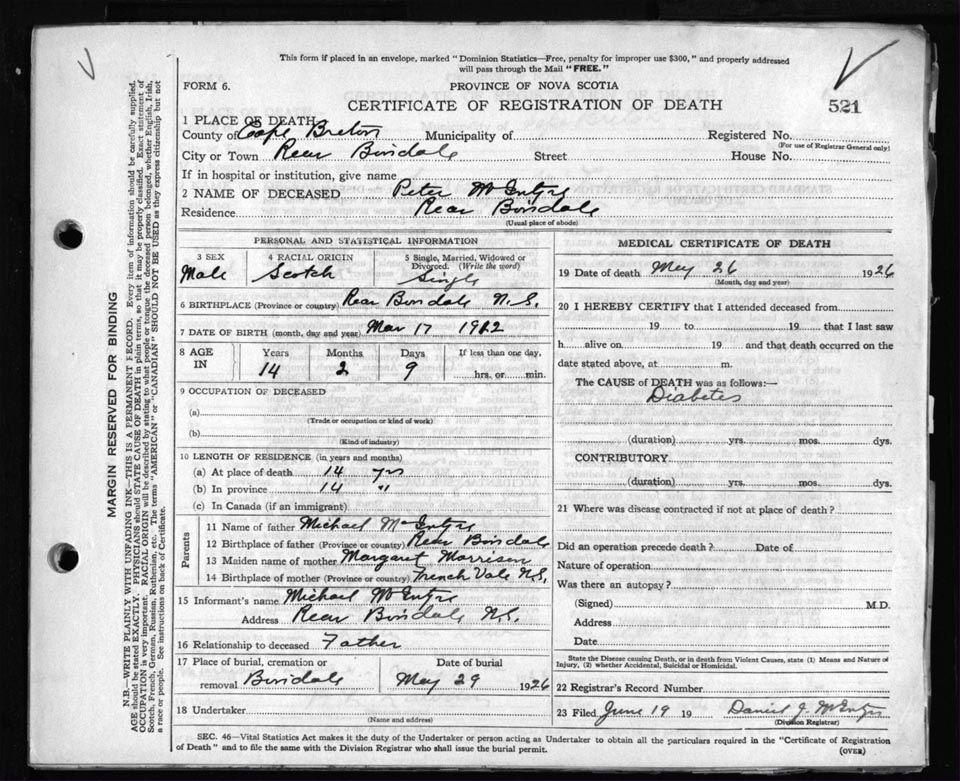 This form if placed in an envelope, marked "Dominion Statistics—Free, penalty for improper use $300," and properly addressed
will pass through the Mail "FREE."
FORM 6.
PROVINCE OF NOVA SCOTIA
CERTIFICATE OF REGISTRATION OF DEATH
521
1 PLACE OF DEATH
County of Cape Breton Municipality of
Registered No.
(For use of Registrar General only)
City or Town Rear Boisdale Street House No.
If in hospital or institution, give name
2 NAME OF DECEASED Peter McEntyre
Residence Rear Boisdale
(Usual place of abode)
PERSONAL AND STATISTICAL INFORMATION
3 SEX
Male
4 RACIAL ORIGIN
Scotch
5 Single, Married, Widowed or
Divorced. (Write the word)
Single
6 BIRTHPLACE (Province or country) Rear Boisdale N.S.
7 DATE OF BIRTH (month, day and year) Mar 17 1912
8 AGE IN
Years Months Days If less than one day,
14 2 9 hrs. or min.
9 OCCUPATION OF DECEASED
(a)
(Trade or occupation or kind of work)
(b)
(Kind of industry)
10 LENGTH OF RESIDENCE (in years and months)
(a) At place of death 14 yrs
(b) In province 14 "
(c) In Canada (if an immigrant)
Parents
11 Name of father Michael McEntyre
12 Birthplace of father (Province or country) Rear Boisdale
13 Maiden name of mother Margaret Morrison
14 Birthplace of mother (Province or country) French Vale N.S.
15 Informant's name Michael McEntyre
Address Rear Boisdale N.S.
16 Relationship to deceased Father
17 Place of burial, cremation or
removal Boisdale
Date of burial
May 29 1926
18 Undertaker
(Name and address)
MEDICAL CERTIFICATE OF DEATH
19 Date of death May 26 1926
(Month, day and year)
20 I HEREBY CERTIFY that I attended deceased from
19 to 19 that I last saw
h alive on 19 and that death occurred on the
date stated above, at m.
The CAUSE of DEATH was as follows:—
Diabetes
(duration) yrs. mos. dys.
CONTRIBUTORY
(duration) yrs. mos. dys.
21 Where was disease contracted if not at place of death?
Did an operation precede death? Date of
Nature of operation
Was there an autopsy?
(Signed) M.D.
Address
Date
State the Disease causing Death, or in death from Violent Causes, state (1) Means and Nature of
Injury, (2) whether Accidental, Suicidal or Homicidal.
22 Registrar's Record Number
23 Filed June 19 19 Daniel J. McEntyre
(Division Registrar)
SEC. 46—Vital Statistics Act makes it the duty of the Undertaker or person acting as Undertaker to obtain all the particulars required in the "Certificate of Registration
of Death" and to file the same with the Division Registrar who shall issue the burial permit. (OVER)
MARGIN RESERVED FOR BINDING
N.B.—WRITE PLAINLY WITH UNFADING INK—THIS IS A PERMANENT RECORD. Every item of information should be carefully supplied.
AGE should be stated EXACTLY. PHYSICIANS should STATE CAUSE OF DEATH in plain terms, so that it may be properly classified. Exact statement of
OCCUPATION is very important. RACIAL ORIGIN will be described by stating to what people or tongue the deceased person belonged, whether English, Irish,
Scotch, French, German, Russian, Ruthenian, etc. The terms "AMERICAN" or "CANADIAN" SHOULD NOT BE USED as they express citizenship but not
a race or people. See instructions on back of Certificate.